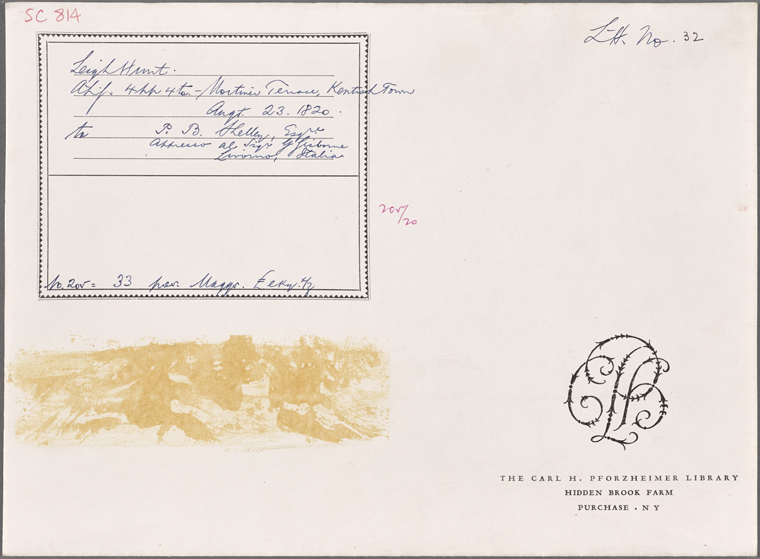 SC 814
L.H. No. 32
Leigh Hunt.
A.L.S. 4pp 4to. - Mortimer Terrace, Kentish Town
Augt. 23. 1820.
to P. B. Shelley, Esqre
Appresso al Sigr G Gisborne
Livorno, Italia
205/20
No. 205 = 33 prev. Maggs.
THE CARL H. PFORZHEIMER LIBRARY
HIDDEN BROOK FARM
PURCHASE . N Y